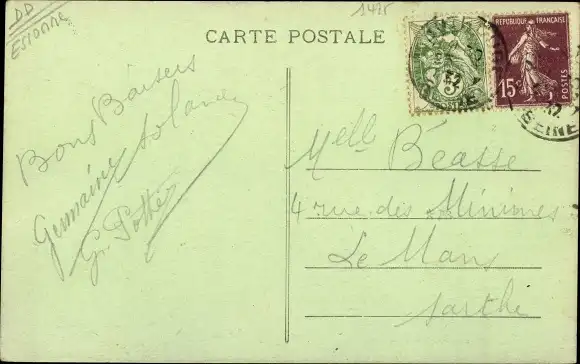 DD
ESSONNE
1415
CARTE POSTALE
REPUBLIQUE FRANÇAISE
15c
POSTES
SEINE
Bons Baisers
Germaine Solange
G. Potter
Melle Béasse
4 rue des Minimes
Le Mans
Sarthe